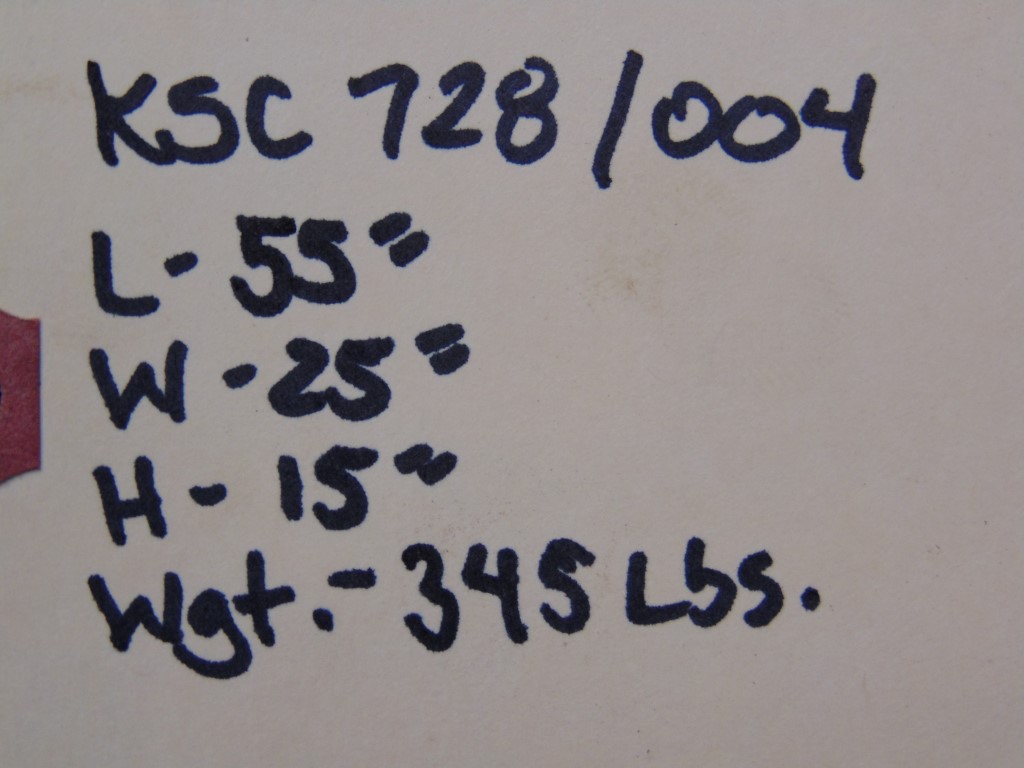 KSC 728/004
L- 55"
W - 25"
H - 15"
Wgt.- 345 Lbs.